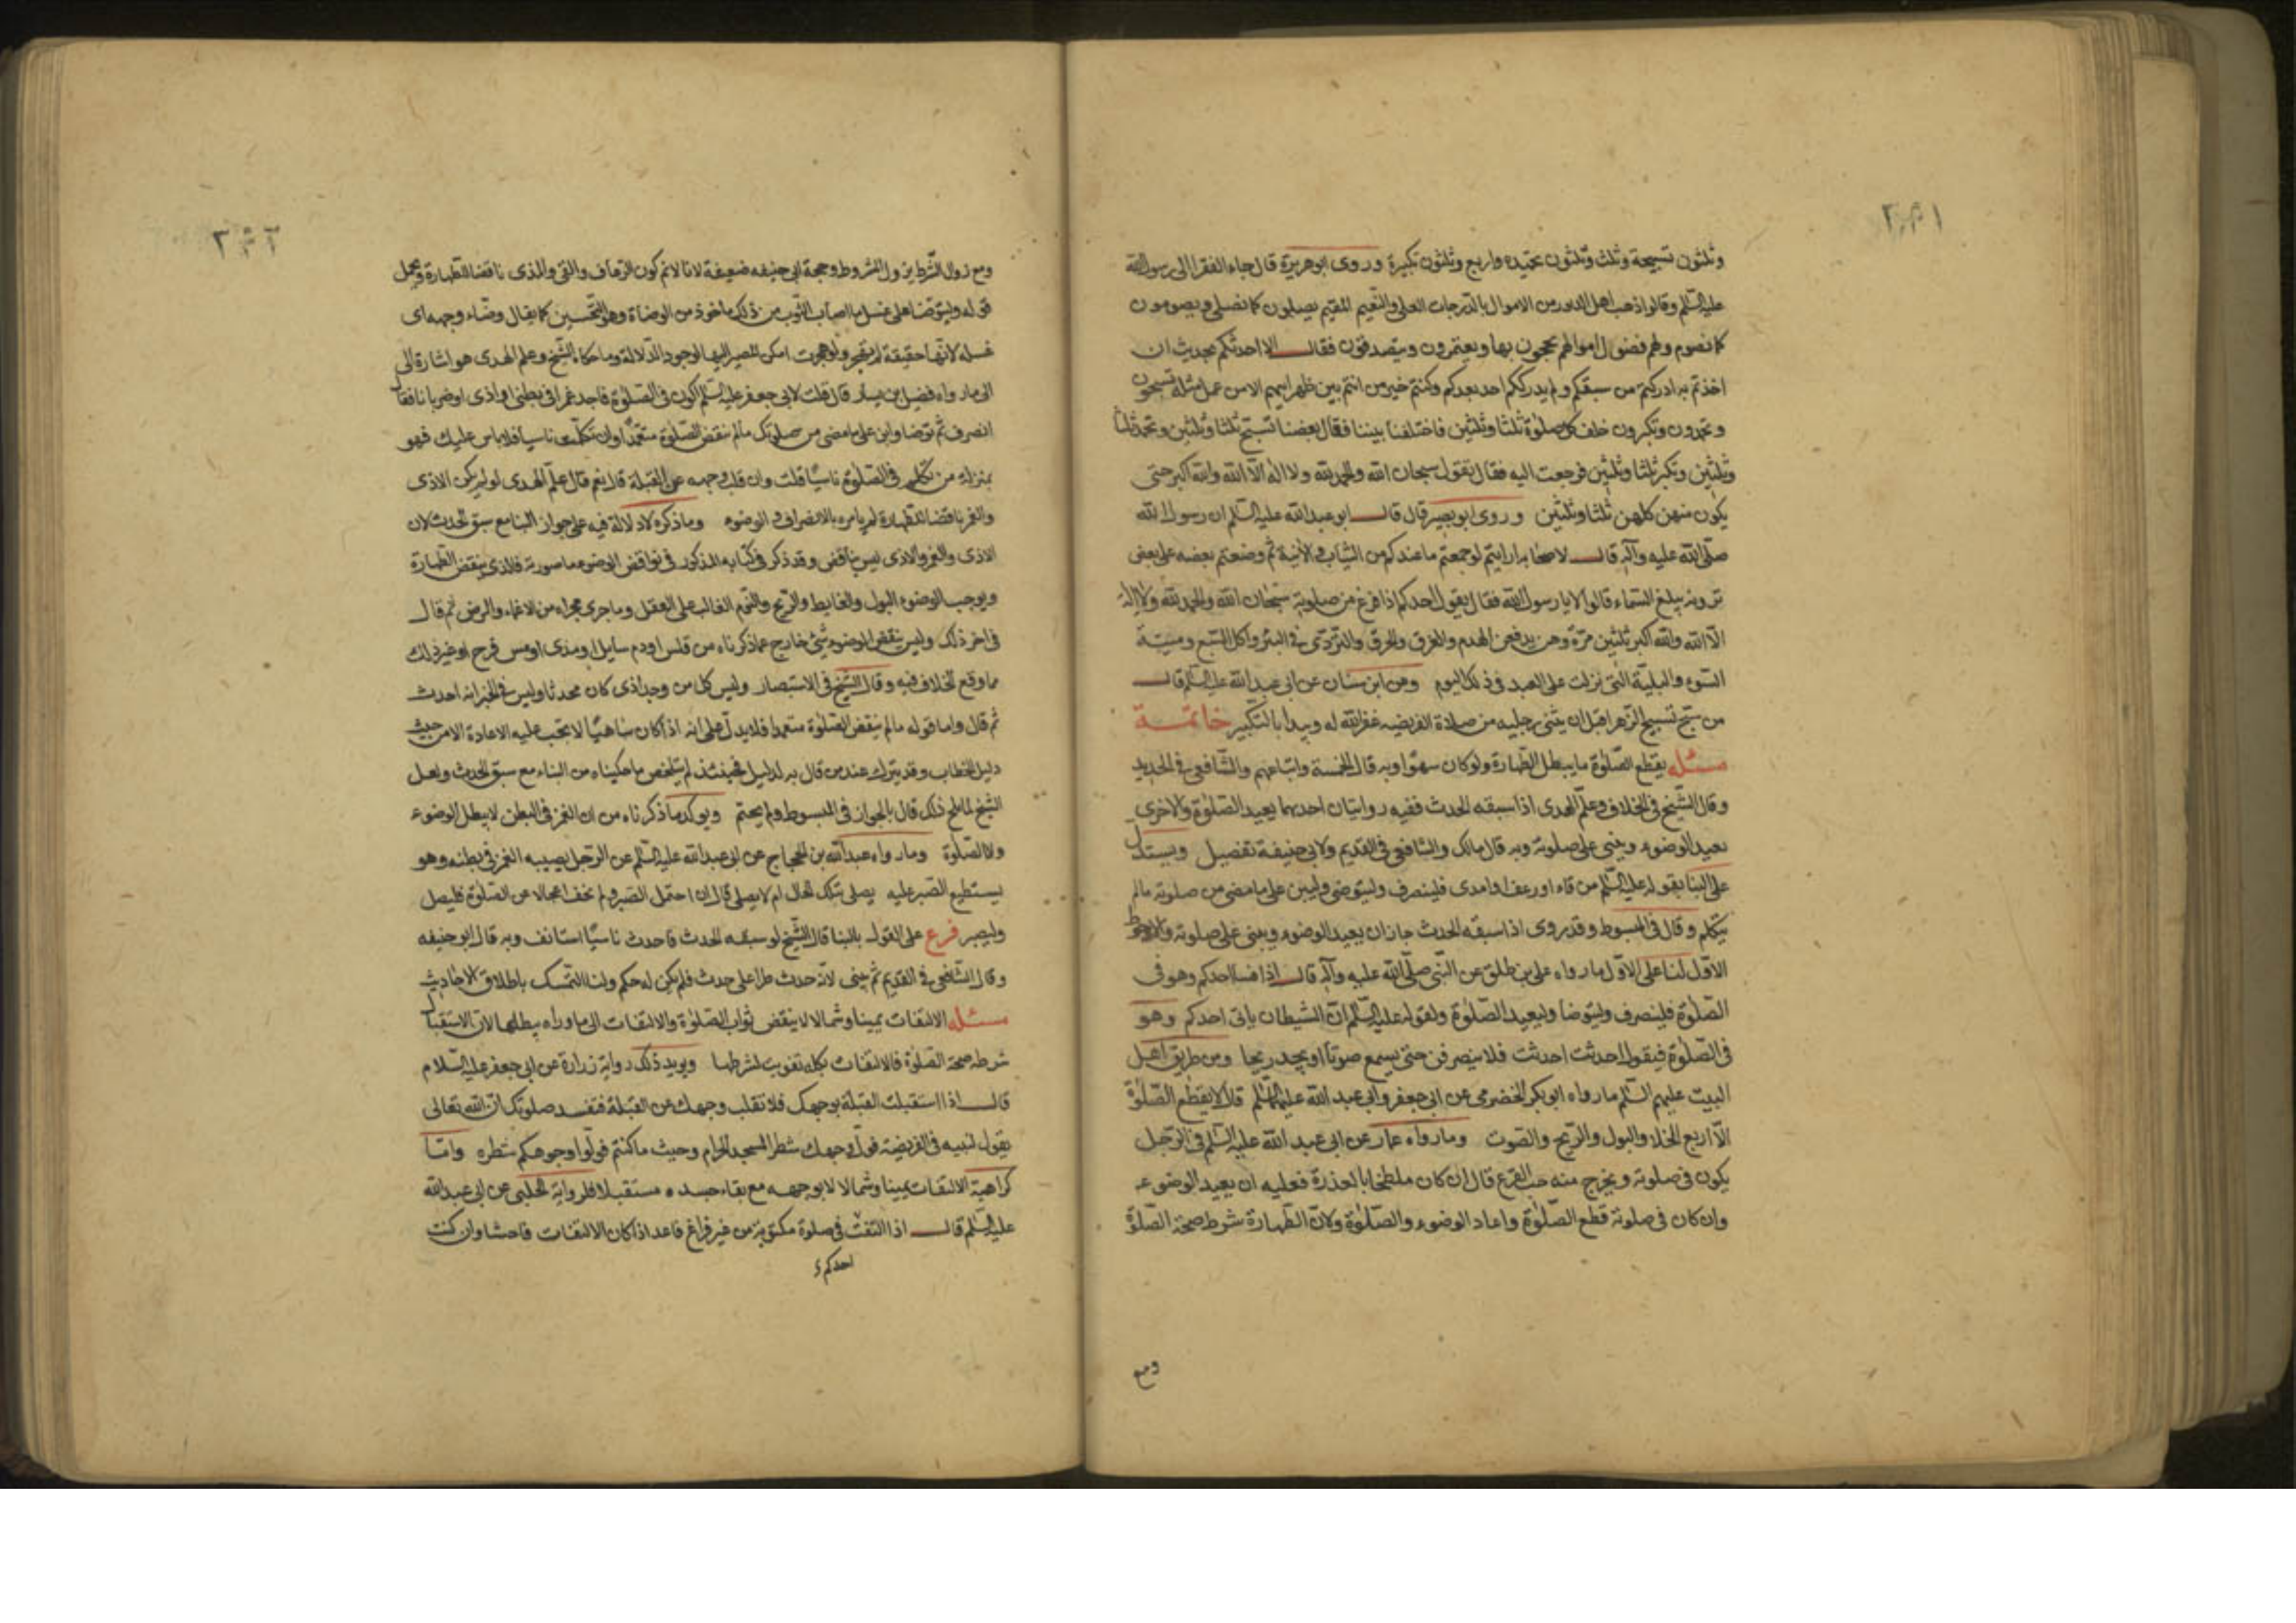 وثلثون تسبيحة وثلث وثلثون تحميدة واربع وثلثون تكبيرة وروى ابو هريرة قال جاء الفقرا الى رسول الله
عليه السلم وقالوا ذهب اهل الدثور من الاموال بالدرجات العلى والنعيم المقيم يصلون كما نصلى ويصومون
كما نصوم ولهم فضول اموالهم يحجون بها ويعتمرون ويتصدقون فقال الا احدثكم بحديث ان
اخذتم به ادركتم من سبقكم ولم يدرككم احد بعدكم وكنتم خير من انتم بين ظهرانيهم الا من عمل مثله تسبحون
وتحمدون وتكبرون خلف كل صلوة ثلثا وثلثين فاختلفنا بيننا فقال بعضنا نسبح ثلثا وثلثين ونحمد ثلثا
وثلثين ونكبر ثلثا وثلثين فرجعت اليه فقال يقول سبحان الله والحمد لله ولا اله الا الله والله اكبر حتى
يكون منهن كلهن ثلثا وثلثين وروى ابو بصير قال قال ابو عبد الله عليه السلم ان رسول الله
صلى الله عليه وآله قال لاصحابه ارايتم لو جمعتم ما عندكم من الثياب والآنية ثم وضعتم بعضه على بعض
ترونه يبلغ السماء قالوا لا يا رسول الله فقال يقول احدكم اذا فرغ من صلوته سبحان الله والحمد لله ولا اله
الا الله والله اكبر ثلثين مرة وهن يدفعن الهدم والغرق والحرق والتردى فى البئر واكل السبع وميتة
السوء والبلية التى نزلت على العبد فى ذلك اليوم وعن ابن سنان عن ابى عبد الله عليه السلم قال
من سبح تسبيح الزهرا قبل ان يثنى رجليه من صلاة الفريضه غفر الله له ويبدا بالتكبير خاتمة
مسئله يقطع الصلوة ما يبطل الطهارة ولو كان سهوا وبه قال الخمسة واتباعهم والشافعى فى الجديد
وقال الشيخ فى الخلاف وعلم الهدى اذا سبقه الحدث ففيه روايتان احديهما يعيد الصلوة والاخرى
يعيد الوضوء ويبنى على صلوته وبه قال مالك والشافعى فى القديم ولابى حنيفة تفصيل ويستدل
على البنا بقوله عليه السلم من قاء او رعف او امذى فلينصرف وليتوضى وليبن على ما مضى من صلوته ما لم
يتكلم وقال فى المبسوط وقد روى اذا سبقه الحدث جاز ان يعيد الوضوء ويبنى على صلوته والاحوط
الاول لنا على الاول ما رواه على بن طلق عن النبى صلى الله عليه وآله قال اذا فسا احدكم وهو فى
الصلوة فلينصرف وليتوضا وليعيد الصلوة ولقوله عليه السلم ان الشيطان ياتى احدكم وهو
فى الصلوة فيقول احدثت احدثت فلا ينصرفن حتى يسمع صوتا او يجد ريحا ومن طريق اهل
البيت عليهم السلم ما رواه ابو بكر الحضرمى عن ابى جعفر وابى عبد الله عليهما السلم قالا لا يقطع الصلوة
الا اربع الخلا والبول والريح والصوت وما رواه عمار عن ابى عبد الله عليه السلم فى الرجل
يكون فى صلوته ويخرج منه حب القرع قال ان كان ملطخا بالعذرة فعليه ان يعيد الوضوء
وان كان فى صلوته قطع الصلوة واعاد الوضوء والصلوة ولان الطهارة شرط صحة الصلوة
ومع
ومع زوال الشرط يزول المشروط وحجة ابى حنيفه ضعيفة لانا لا نم كون الرعاف والقى والمذى ناقضا للطهارة ويحمل
قوله وليتوضا على غسل ما اصاب الثوب من ذلك ماخوذ من الوضاة وهو التحسين كما يقال وضاء وجهه اى
غسله لانها حقيقة لم يهجر ولو هجرت امكن المصير اليها لوجود الدلالة وما حكاه الشيخ وعلم الهدى هو اشارة الى
الى ما رواه فضيل بن يسار قال قلت لابى جعفر عليه السلم اكون فى الصلوة فاجد غمزا فى بطنى او اذى او ضربانا فقال
انصرف ثم توضا وابن على ما مضى من صلوتك ما لم تنقض الصلوة متعمدا وان تكلمت ناسيا فلا باس عليك فهو
بمنزلة من تكلم فى الصلوة ناسيا قلت وان قلب وجهه عن القبلة قال نعم قال علم الهدى لو لم يكن الاذى
والغمز ناقضا للطهارة لم يامره بالانصراف والوضوء وما ذكره لا دلالة فيه على جواز البنا مع سبق الحدث لان
الاذى والغمز والاذى ليس بناقض وقد ذكر فى كتابه المذكور فى نواقض الوضوء ما صورته فالذى ينقض الطهارة
ويوجب الوضوء البول والغايط والريح والنوم الغالب على العقل وما جرى مجراه من الاغماء والمرض ثم قال
فى اخر ذلك وليس ينقض الوضوء شئ خارج عما ذكرناه من قلس او دم سايل او مذى او مس فرج او غير ذلك
مما وقع الخلاف فيه وقال الشيخ فى الاستبصار وليس كل من وجد اذى كان محدثا وليس فى الخبر انه احدث
ثم قال واما قوله ما لم ينقض الصلوة متعمدا فلا يدل على انه اذا كان ساهيا لا يجب عليه الاعادة الا من حيث
دليل الخطاب وقد يترك عند من قال به لدليل فحينئذ لم يتلخص ما حكيناه من البناء مع سبق الحدث ولعل
الشيخ لما لمح ذلك قال بالجواز فى المبسوط ولم يحتم ويوكد ما ذكرناه من ان الغمز فى البطن لا يبطل الوضوء
ولا الصلوة وما رواه عبد الله بن الحجاج عن ابى عبد الله عليه السلم عن الرجل يصيبه الغمز فى بطنه وهو
يستطيع الصبر عليه يصلى بتلك الحال ام لا يصلى قال ان احتمل الصبر ولم يخف اعجالا عن الصلوة فليصل
وليصبر فرع على القول بالبنا قال الشيخ لو سبقه الحدث فاحدث ناسيا استانف وبه قال ابو حنيفه
وقال الشافعى فى القديم ثم يبنى لانه حدث طرا على حدث فلم يكن له حكم ولنا التمسك باطلاق الاحاديث
مسئله الالتفات يمينا وشمالا لا ينقض ثواب الصلوة والالتفات الى ما وراه يبطلها لان الاستقبال
شرط صحة الصلوة فالالتفات بكله تفويت لشرطها ويويد ذلك رواية زرارة عن ابى جعفر عليه السلام
قال اذا استقبلت القبلة بوجهك فلا تقلب وجهك عن القبلة فتفسد صلوتك ان الله تعالى
يقول لنبيه فى الفريضة فول وجهك شطر المسجد الحرام وحيث ما كنتم فولوا وجوهكم شطره واما
كراهية الالتفات يمينا وشمالا لا بوجهه مع بقاء جسده مستقبلا فلرواية الحلبى عن ابى عبد الله
عليه السلم قال اذا التفت فى صلوة مكتوبة من غير فراغ فاعد اذا كان الالتفات فاحشا وان كنت
احدكم